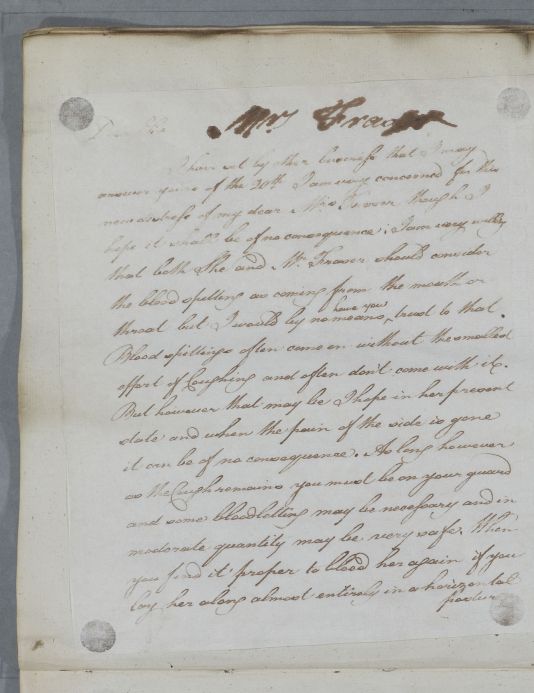 Mrs Fraser
Dear Sir
I have set by other business that I may
answer yours of the 30th I am very concerned for this
new distress of my dear Mrs Fraser though I
hope it shall be of no consequence. I am very willing
that both She and Mr Fraser should consider
the blood spitting as coming from the mouth or
throat but I would by no means have you trust to that.
Blood spittings often come on without the smallest
effort of Coughing and often don't come with it.
But however that may be I hope in her present
state and when the pain of the side is gone
it can be of no consequence. As long however
as the Cough remains you must be on your guard
and some bloodletting may be necessary and in
moderate quantity may be very safe. When
you find it proper to blood her again if you
lay her along almost entirely in a horizontal
posture